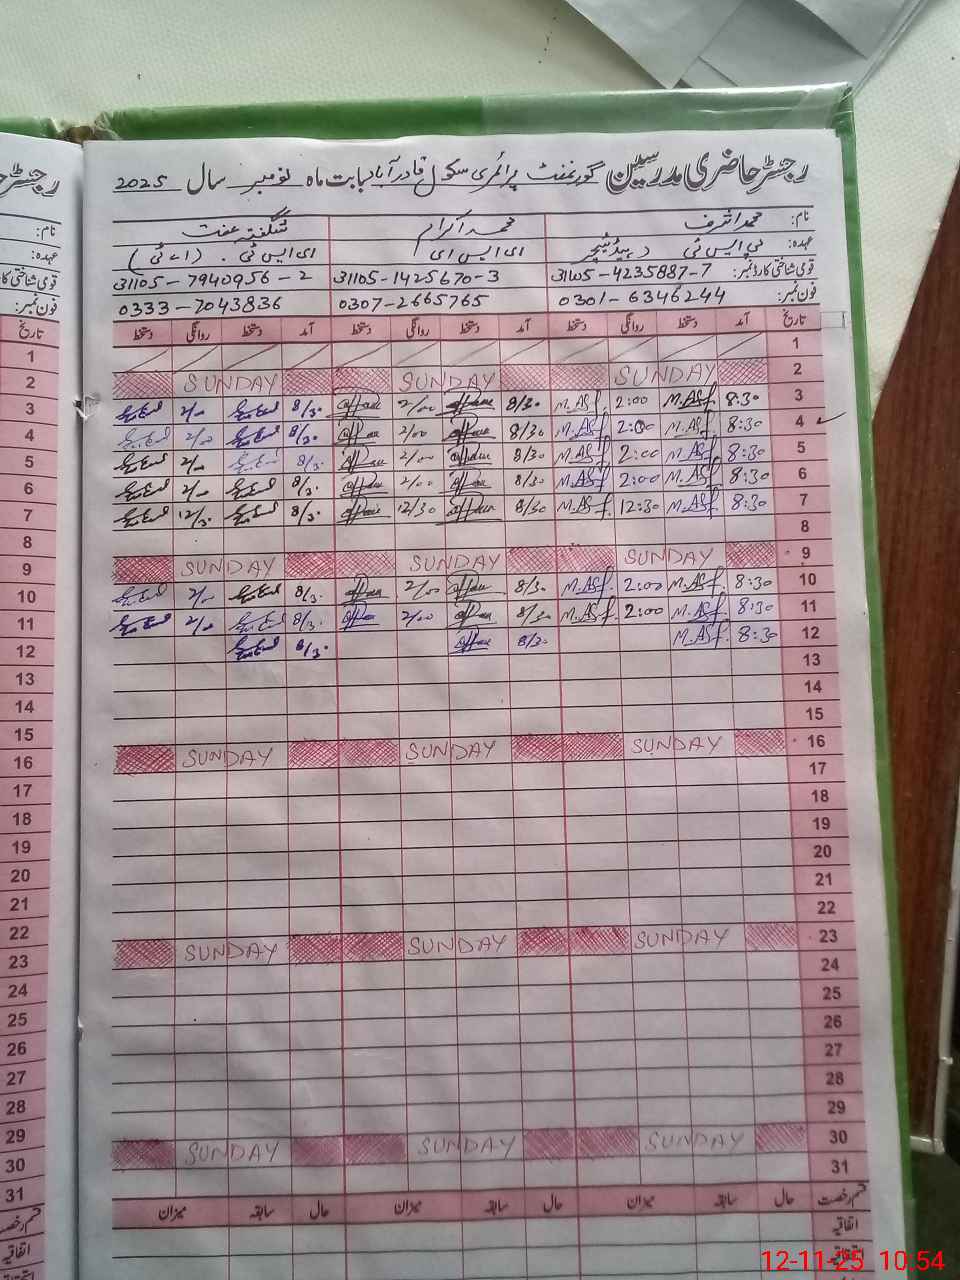 رجسٹر حاضری مدرسین گورنمنٹ پرائمری سکول قادر آباد بابت ماہ نومبر سال 2025
نام: محمد اشرف محمد اکرام شگفتہ عفت
عہدہ: پی ایس ٹی ہیڈ ٹیچر ای ایس ای ای ایس ٹی . (اے ٹی)
قومی شناختی کارڈ نمبر: 31105-4235887-7 31105-1425670-3 31105-7940956-2
فون نمبر: 0301-6346244 0307-2665765 0333-7043836
تاریخ آمد دستخط روانگی دستخط آمد دستخط روانگی دستخط آمد دستخط روانگی دستخط
1
2 SUNDAY SUNDAY SUNDAY
3 8:30 M.ASf 2:00 M.ASf 8/30 2/00 8/30 2/00
4 8:30 M.ASf 2:00 M.ASf 8/30 2/00 8/30 2/00
5 8:30 M.ASf 2:00 M.ASf 8/30 2/00 8/30 2/00
6 8:30 M.ASf 2:00 M.ASf 8/30 2/00 8/30 2/00
7 8:30 M.ASf 12:30 M.ASf 8/30 12/30 8/30 12/30
8
9 SUNDAY SUNDAY SUNDAY
10 8:30 M.ASf 2:00 M.ASf 8/30 2/00 8/30 2/00
11 8:30 M.ASf 2:00 M.ASf 8/30 2/00 8/30 2/00
12 8:30 M.ASf 8/30 8/30
13
14
15
16 SUNDAY SUNDAY SUNDAY
17
18
19
20
21
22
23 SUNDAY SUNDAY SUNDAY
24
25
26
27
28
29
30 SUNDAY SUNDAY SUNDAY
31
قسم رخصت حال سابقہ میزان حال سابقہ میزان حال سابقہ میزان
اتفاقیہ
12-11-25 10:54